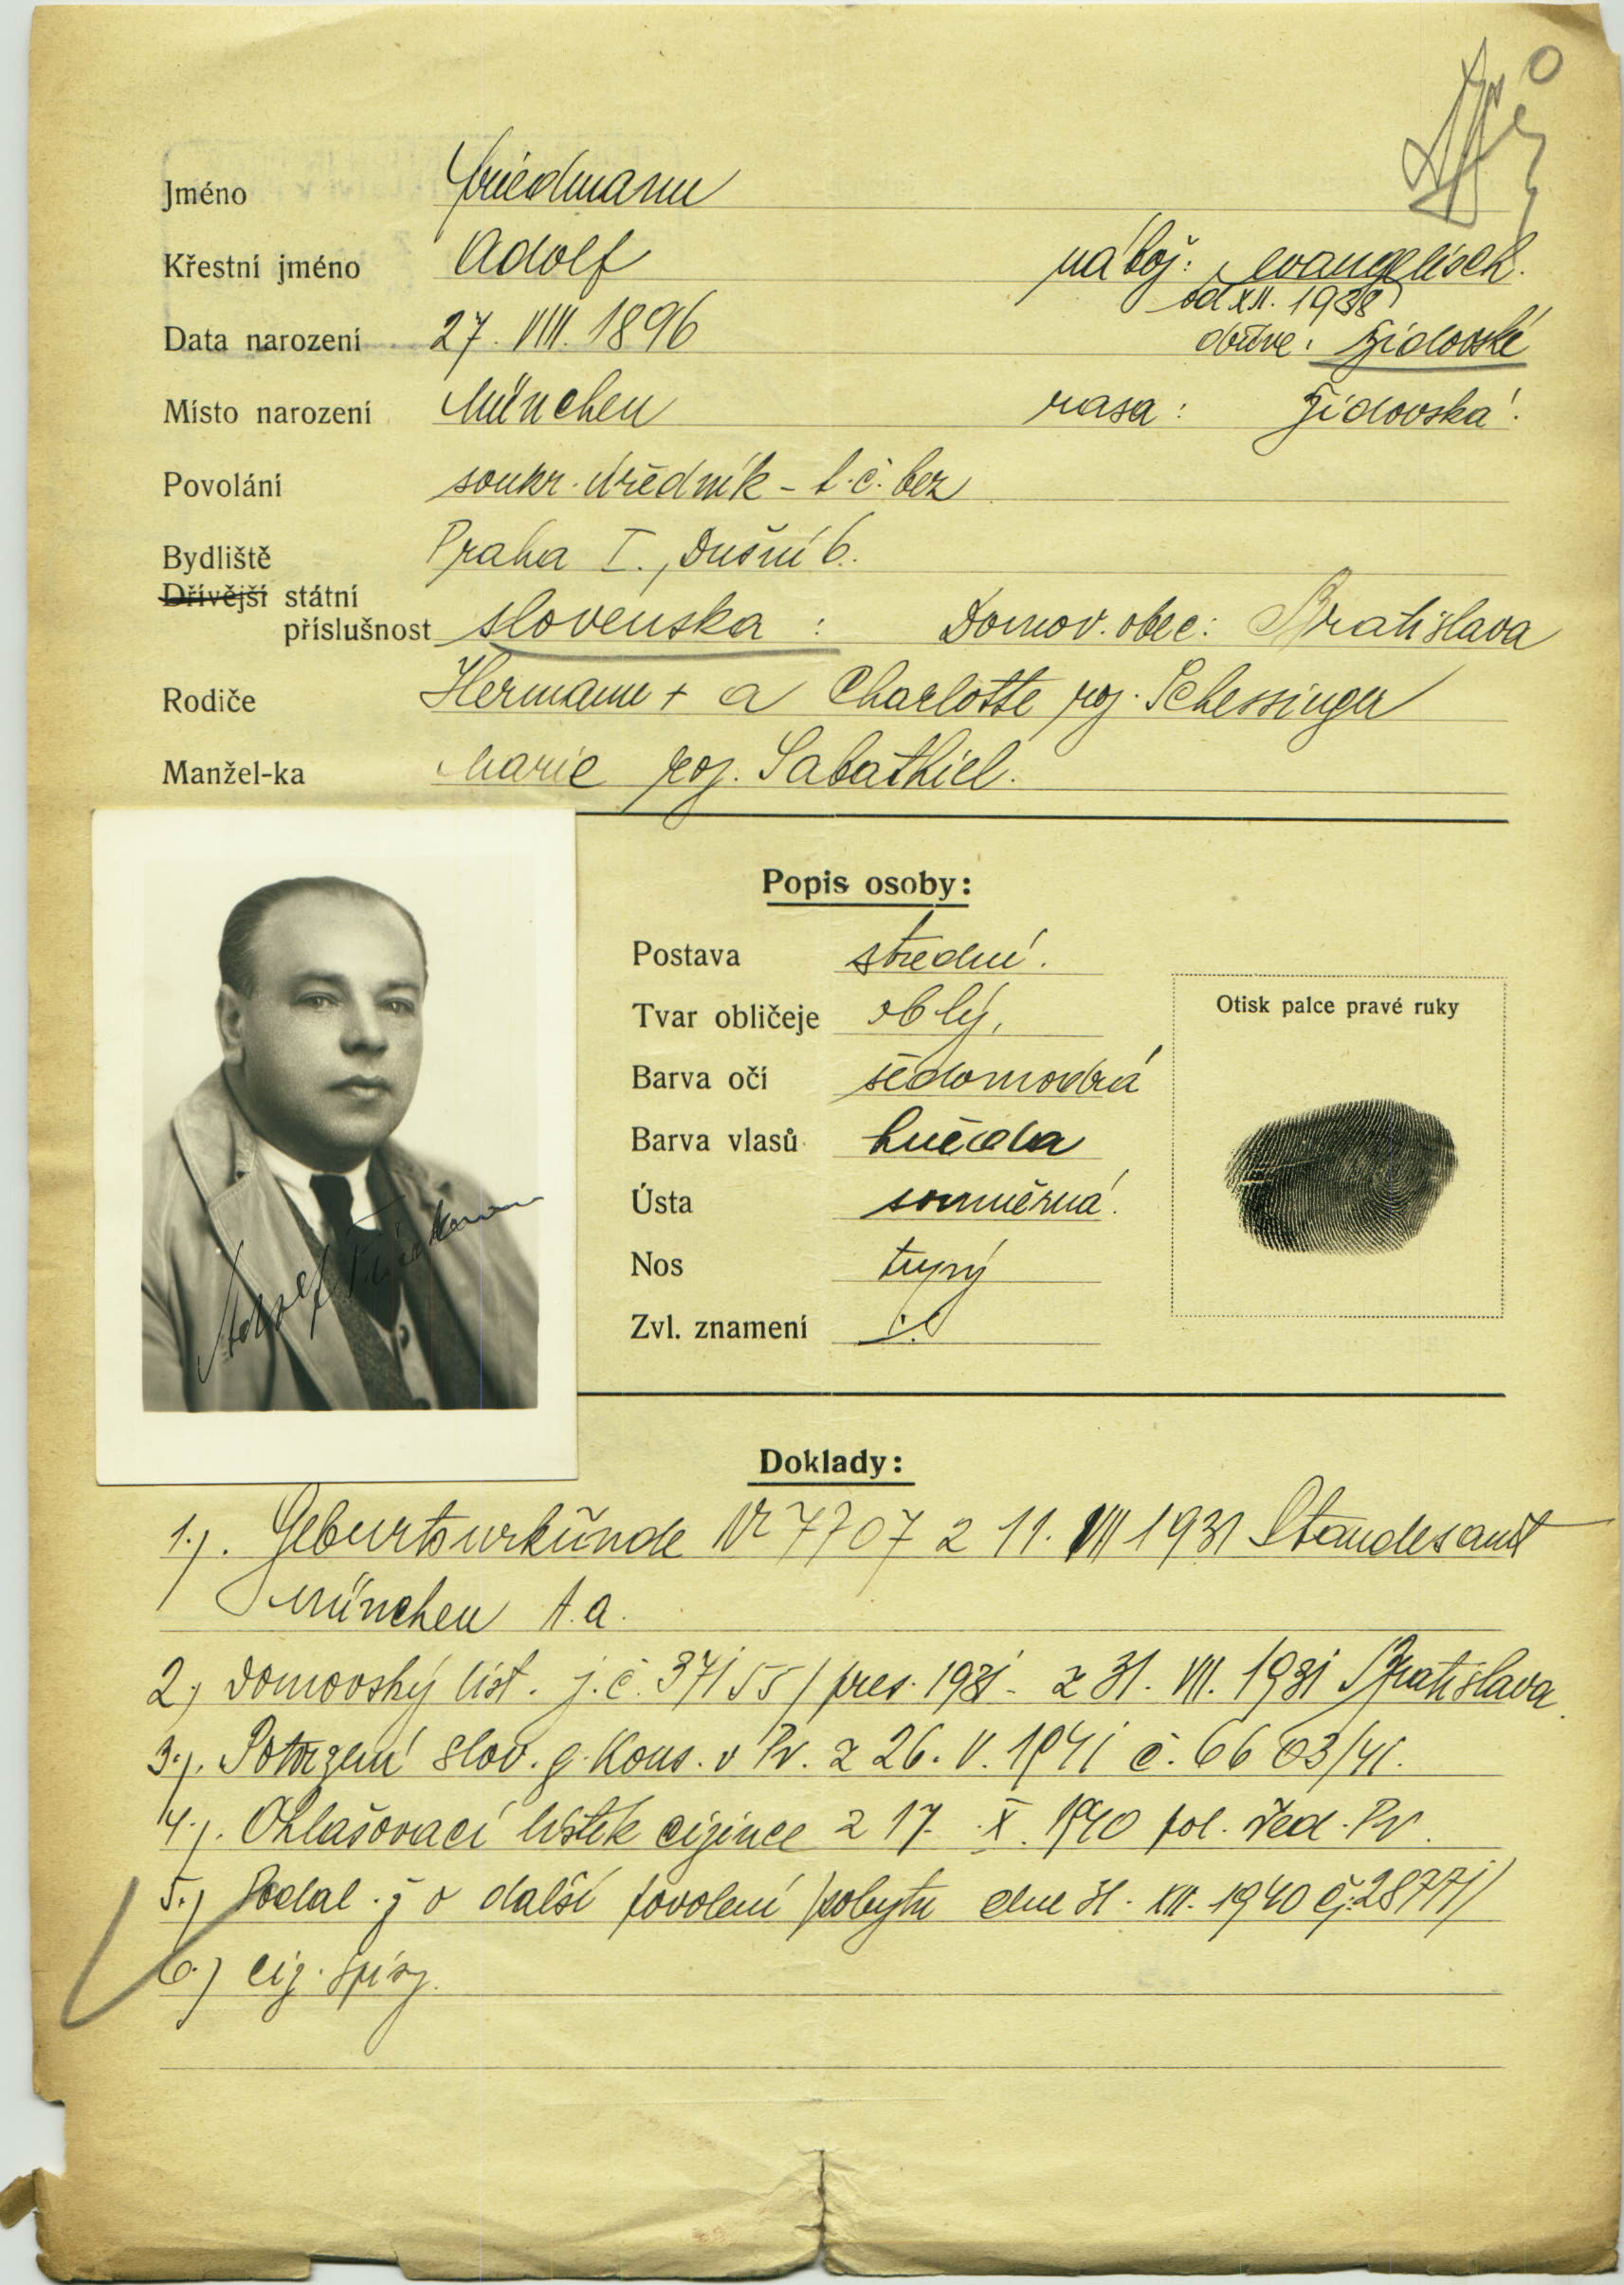 Jméno Friedmann
Křestní jméno Adolf nábož: evangelisch.
od XII. 1938
Data narození 27. VIII. 1896 dříve: židovské
Místo narození München rasa: židovská.
Povolání soukr. úředník - t.č. bez
Bydliště Praha I., Dušní 6.
Dřívější státní
příslušnost slovenska : Domov. obec: Bratislava
Rodiče Hermann + a Charlotte roz. Schessinger
Manžel-ka Marie roz. Sabathiel.
Popis osoby:
Postava střední.
Tvar obličeje oblý.
Barva očí šedomodrá
Barva vlasů hnědá
Ústa souměrná.
Nos tupý
Zvl. znamení
Otisk palce pravé ruky
Adolf Friedmann
Doklady:
1.). Geburtsurkunde Nr 7707 z 11. VIII 1931 Standesamt
München
2.) Domovský list. j.č. 37155/pres. 1931 - z 31. VII. 1931 Bratislava.
3.). Potvrzení slov. g. Kons. v Pr. z 26. V. 1941 č. 6603/41.
4.). Ohlašovací lístek cizince z 17. X. 1940 pol. řed. Pr.
5.) Podal ž o další povolení pobytu dne XII. 1940
6.) ciz. spisy.